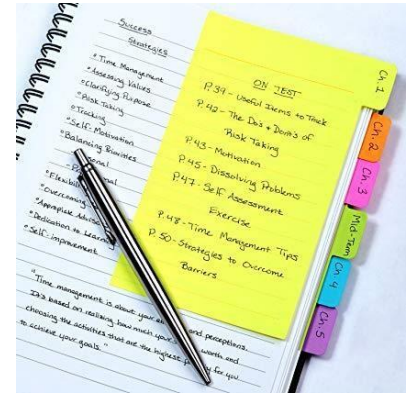 Success
Strategies
° Time Management
° Assessing Values
° Clarifying Purpose
° Risk Taking
° Tracking
° Self-Motivation
° Balancing Priorities
° Flexibi
° Overcoming
° Appropriate Advise
° Dedication to Learn
° Self-improvement
"Time management is about your and perceptions.
It's based on realizing how much your worth and
choosing the activities that are the highest for you
to achieve your goals."
ON TEST
P.39 - Useful Items to Track
P.42 - The Do's + Dont's of
Risk Taking
P.43 - Motivation
P.45 - Dissolving Problems
P.47 - Self Assessment
Exercise
P.48 - Time Management Tips
P.50 - Strategies to Overcome
Barriers
Ch. 1
Ch. 2
Ch. 3
Mid-Term
Ch. 4
Ch. 5